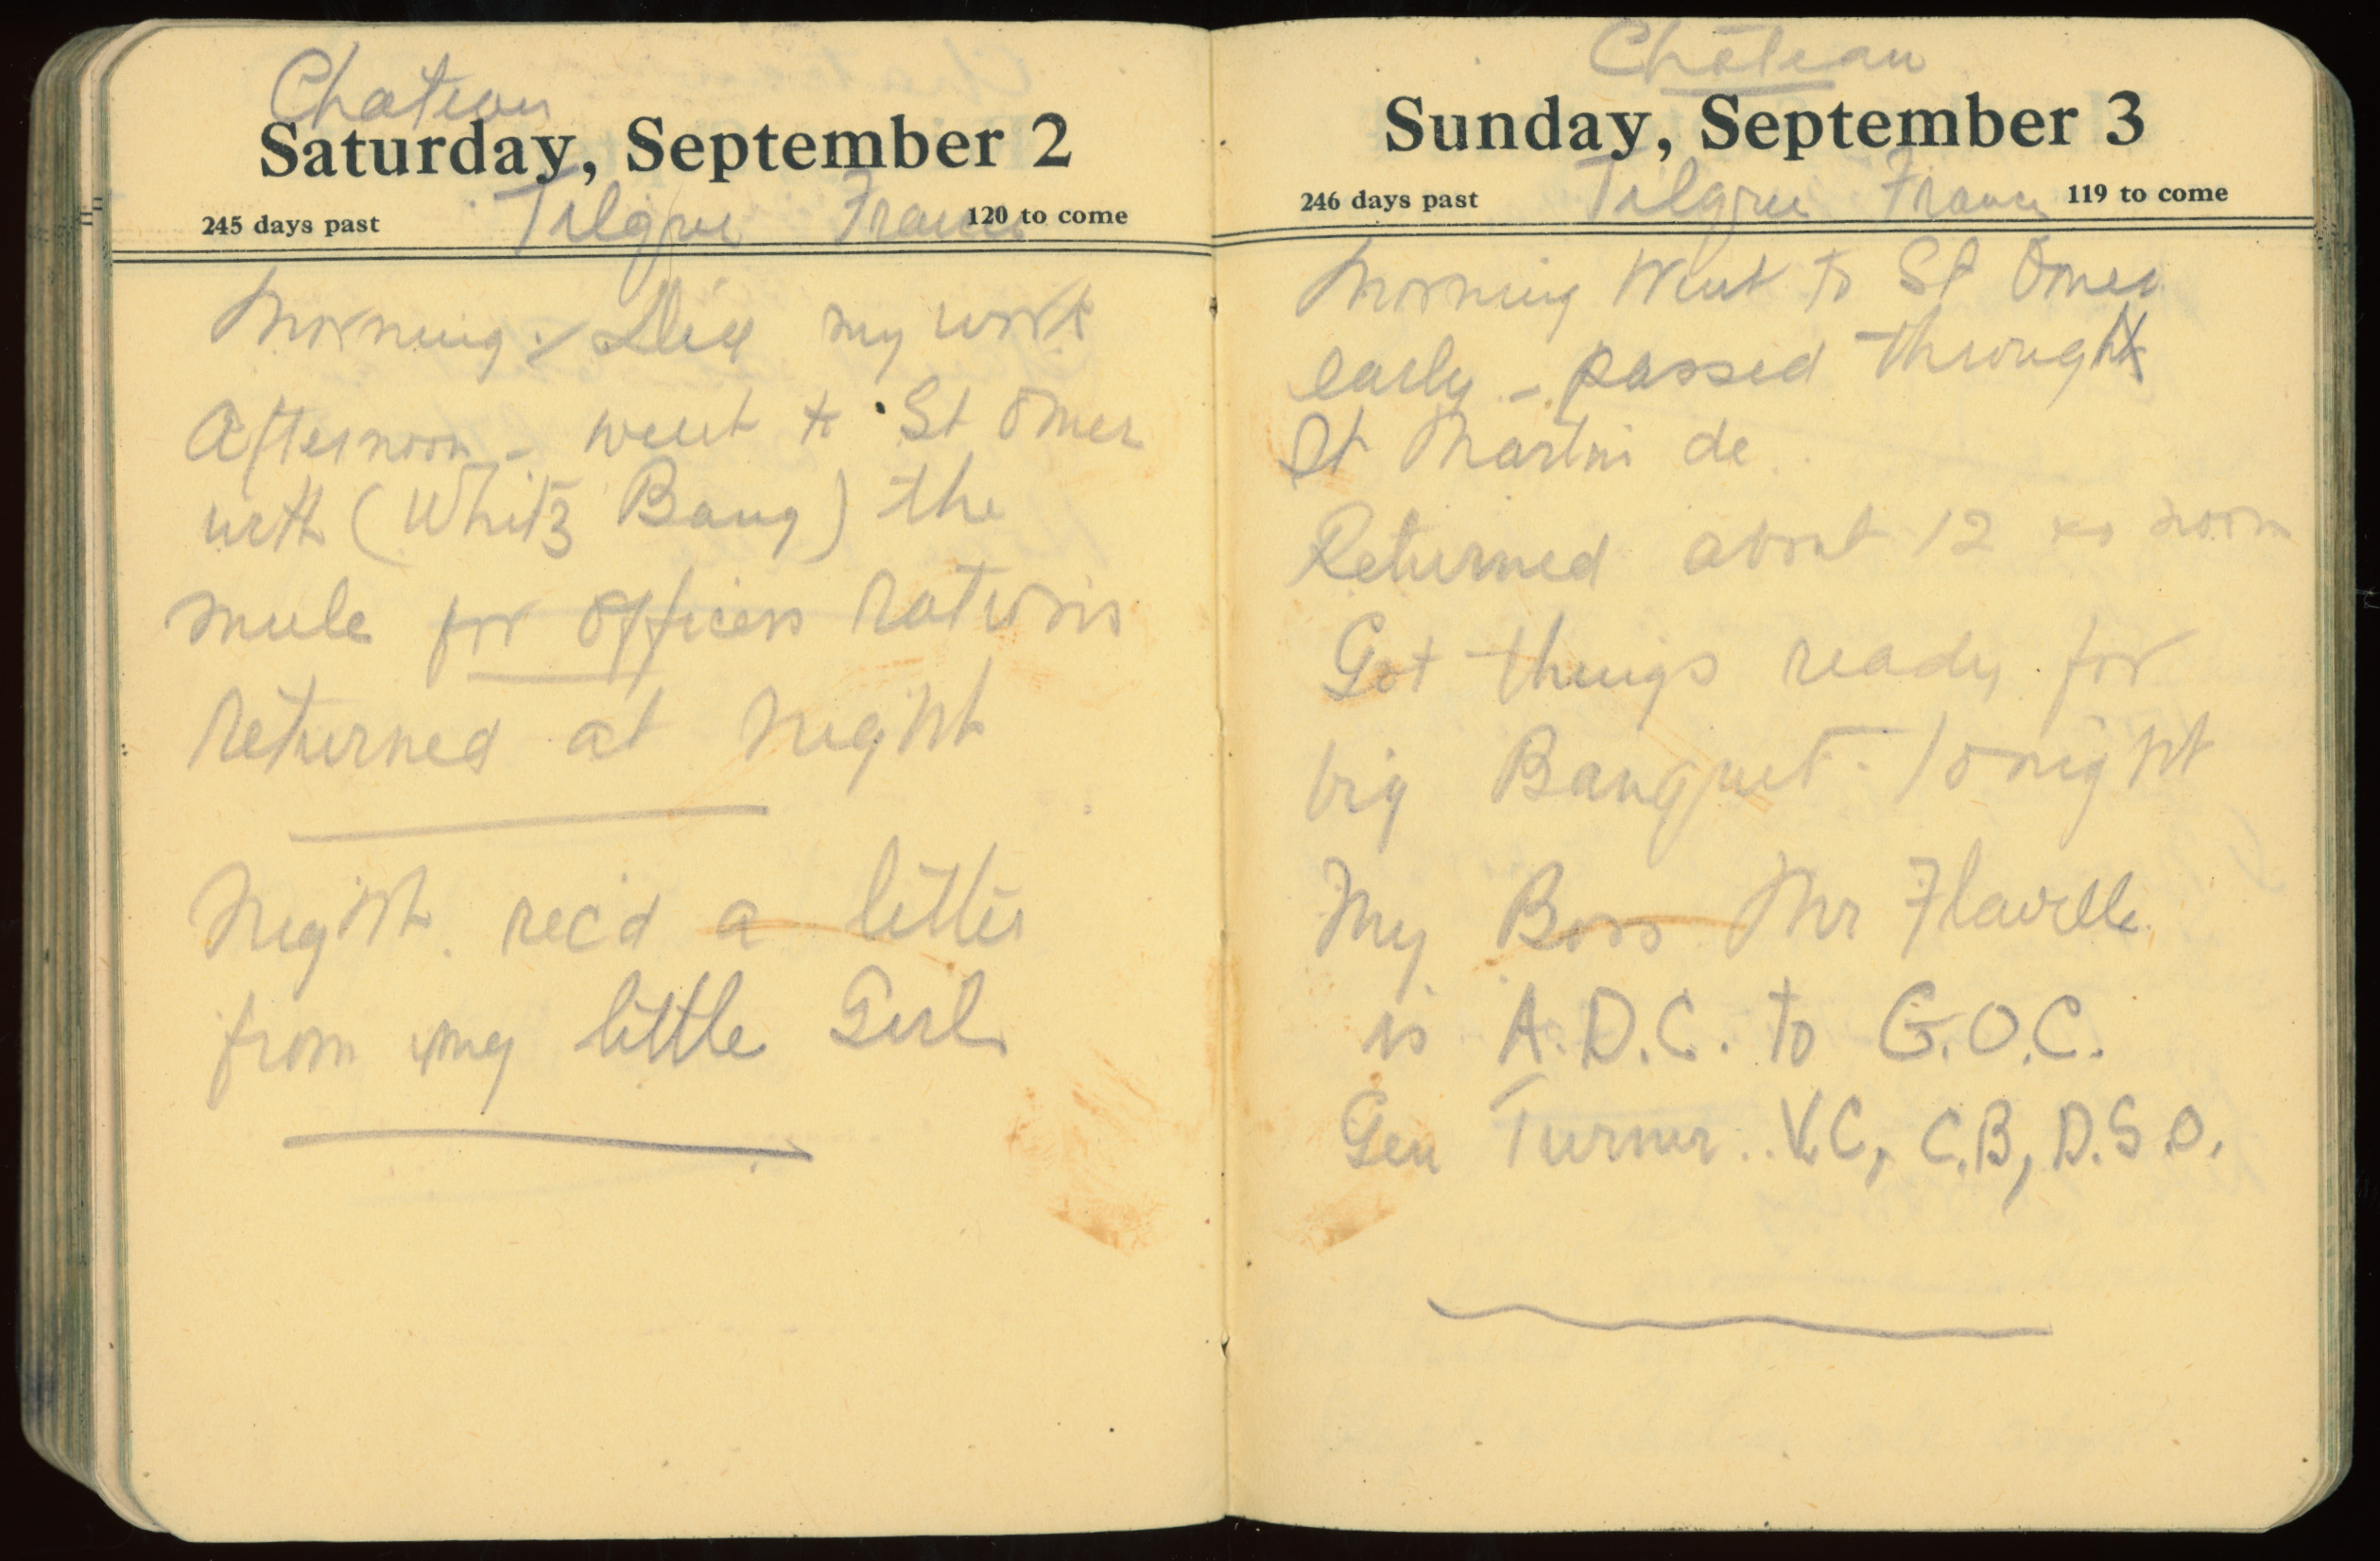 Chateau
Saturday, September 2
245 days past Tilque France 120 to come
Morning. Did my work
Afternoon - went to St Omer
with (Whitz Bang) the
mule for officers rations
returned at night
Night. rec'd a letter
from my little Girl
Château
Sunday, September 3
246 days past Tilque France 119 to come
Morning Went to St Omer
early - passed through
St Martin de
Returned about 12 noon
Got things ready for
big Banquet. Tonight
My Boss Mr Flavelle
is A.D.C. to G.O.C.
Gen Turner.. V.C, C.B, D.S.O.